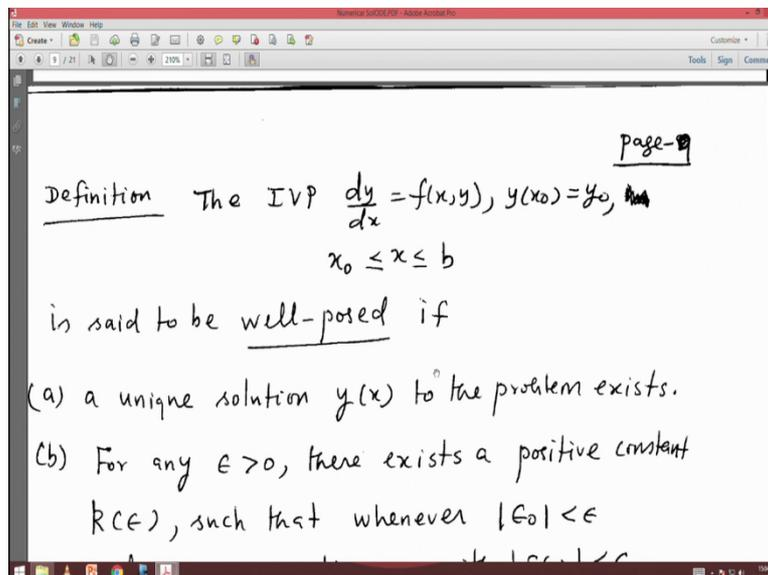 Numerical SolODE.PDF - Adobe Acrobat Pro
File Edit View Window Help
Create Customize
9 / 21 210% Tools Sign Comme
page-9
Definition The IVP dy/dx = f(x,y), y(x0) = y0,
x0 ≤ x ≤ b
is said to be well-posed if
(a) a unique solution y(x) to the problem exists.
(b) For any ϵ >0, there exists a positive constant
k(ϵ), such that whenever |ϵ0| < ϵ